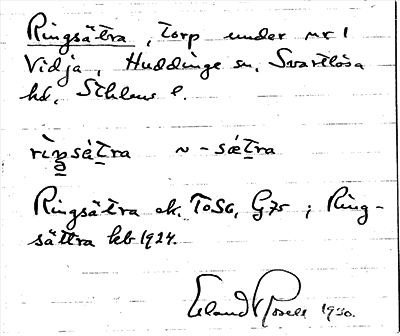 Ringsätra, torp under nr 1
Vidja, Huddinge sn, Svartlösa
hd, Sthlms l.
rìŋsä́tra ~ -sǽtra
Ringsätra ek. ToSG, G75; Ring-
sättra kb 1924.
Erland Rosell 1930.